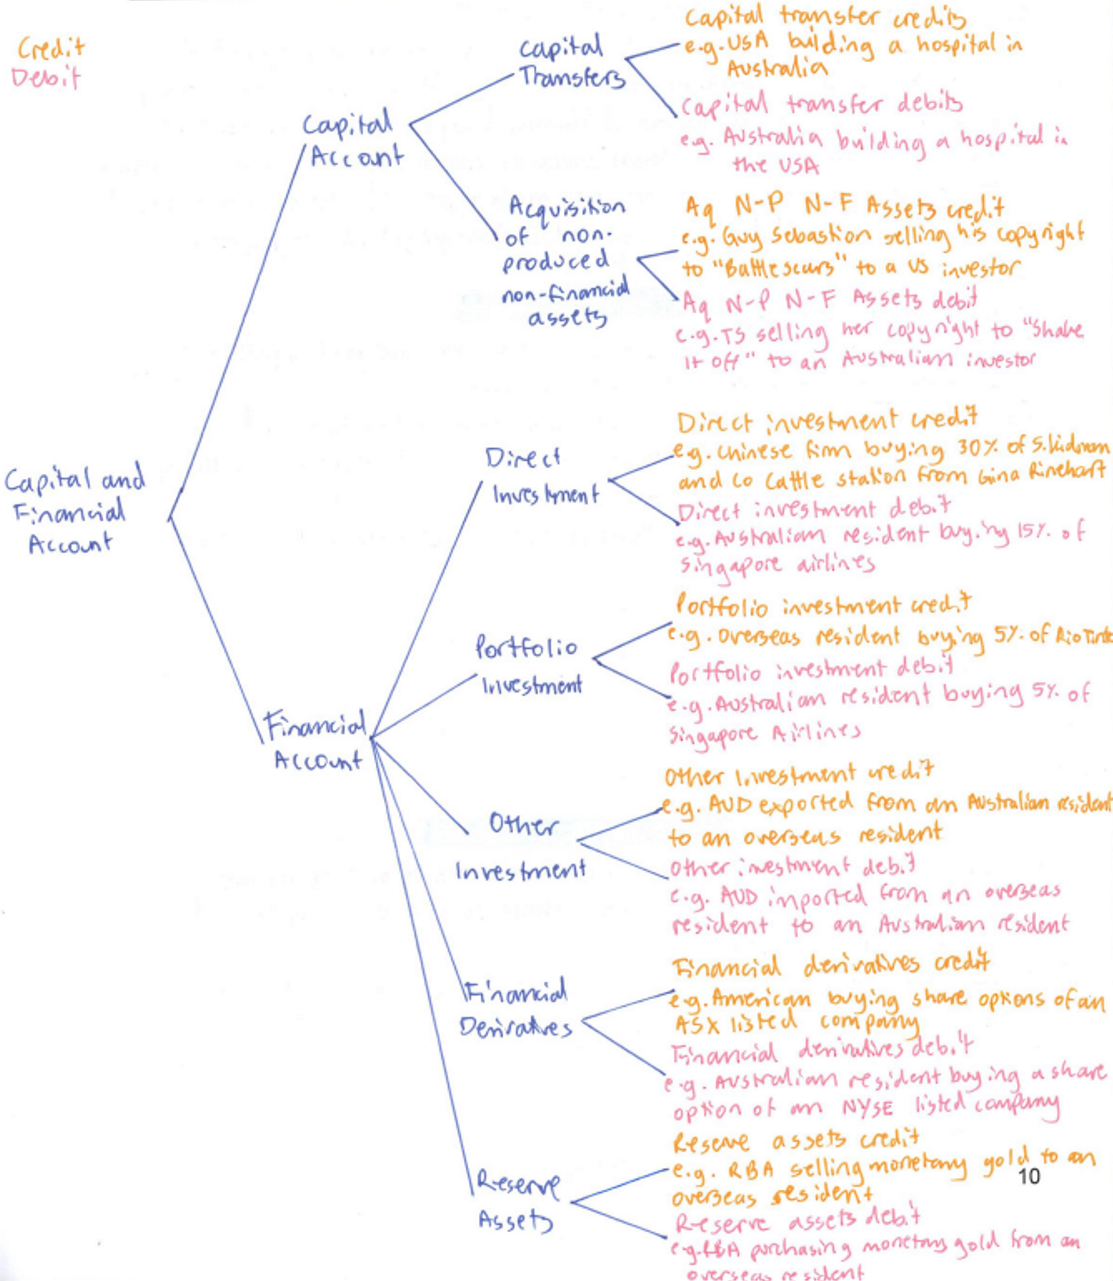 Credit
Debit
Capital and
Financial
Account
Capital
Account
Capital
Transfers
Capital transfer credits
e.g. USA building a hospital in
Australia
Capital transfer debits
e.g. Australia building a hospital in
the USA
Acquisition
of non-
produced
non-financial
assets
Aq N-P N-F Assets credit
e.g. Guy Sebastian selling his copyright
to "Battlescars" to a US investor
Aq N-P N-F Assets debit
e.g. TS selling her copyright to "Shake
It off" to an Australian investor
Financial
Account
Direct
Investment
Direct investment credit
e.g. Chinese firm buying 30% of S. Kidman
and Co Cattle station from Gina Rinehart
Direct investment debit
e.g. Australian resident buying 15% of
Singapore airlines
Portfolio
Investment
Portfolio investment credit
e.g. overseas resident buying 5% of Rio Tinto
Portfolio investment debit
e.g. Australian resident buying 5% of
Singapore Airlines
Other
Investment
Other investment credit
e.g. AUD exported from an Australian resident
to an overseas resident
Other investment debit
e.g. AUD imported from an overseas
resident to an Australian resident
Financial
Derivatives
Financial derivatives credit
e.g. American buying share options of an
ASX listed company
Financial derivatives debit
e.g. Australian resident buying a share
option of an NYSE listed company
Reserve
Assets
Reserve assets credit
e.g. RBA selling monetary gold to an
overseas resident
Reserve assets debit
e.g. RBA purchasing monetary gold from an
overseas resident
10